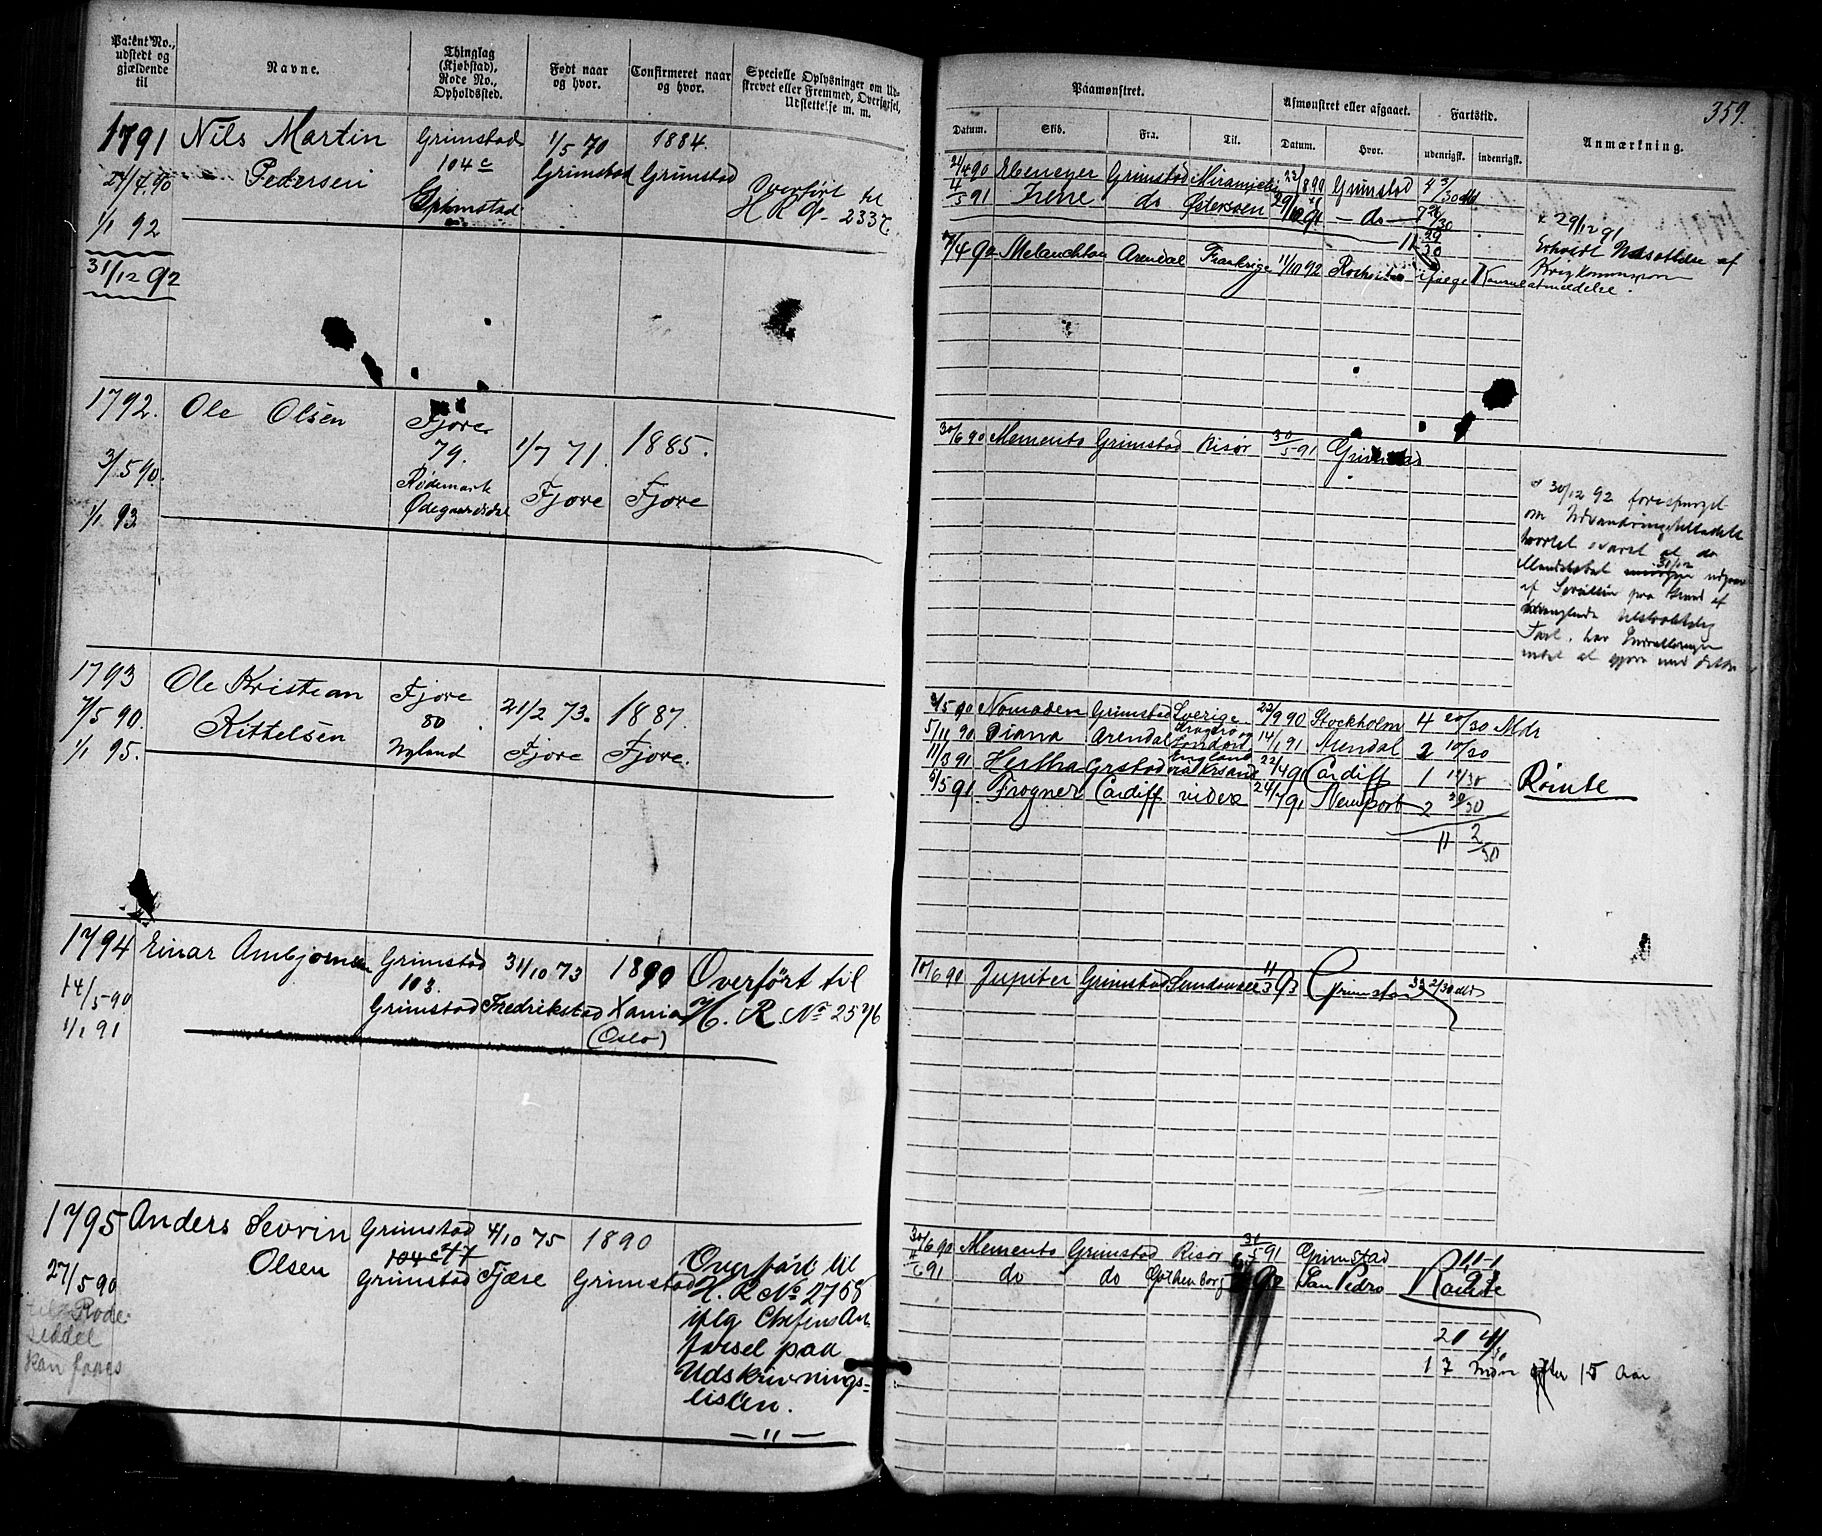 Patent No., udstedt og gjældende til
Navne.
Thinglag (Kjøbstad), Rode No., Opholdssted.
Født naar og hvor.
Confirmeret naar og hvor.
Specielle Oplysninger om Udskrevet eller Fremmed, Overførsel, Udslettelse m. m.
Paamønstret.
Afmønstret eller afgaaet.
Fartstid.
Anmærkning.
359.
Datum.
Skib.
Fra.
Til.
Datum.
Hvor.
udenrigsk.
indenrigsk.
1791 Nils Martin Grimstad 1/5 70 1884.
Pedersen 104 c Grimstad Grimstad
1/1 92
31/12 92
Overført til
H R 2337
21/4 90 Ebeneser Grimstad Miramichi Grimstad 4 3/30 Md
4/5 91 Irene do 29/12 91 do
Melanchton Arendal Frankrige 11/10 92
29/12 91
Erholdt Udsættelse af
ifølge Konsulatmeldelse.
1792. Ole Olsen Fjære 1/7 71. 1885.
3/5 90. 79.
Ødegaardsdal Fjære Fjære
1/1 93
30/6 90 Memento Grimstad Risør 30/5 91 Grimstad
30/12 92 forespurgt
om
hvortil svaret at da
af paa Grund af
Fart. har
intet at gjøre med dette
1793 Ole Kristian Fjære 21/2 73. 1887.
7/5 90. Kittelsen 80
1/1 95. Nyland Fjære Fjære.
5 90 Nomaden Grimstad Sverige 22/9 90 Stockholm 4 20/30 Mdr
5/11 90 Diana Arendal London 14/1 91 Arendal 2 10/30
11/3 91 Hertha Grstad England 22/4 91 Cardiff 1 12/30
6/5 91 Frogner Cardiff videre 24/7 91 Newport 2
11 2/30
Rømte
1794 Einar Ambjørnsen Grimstad 31/10 73 1890 Overført til
14/5 90 103. Grimstad Fredrikstad Xania H. R. No 2576
1/1 91 (Oslo)
10/6 90 Jupiter Grimstad 11/3 93 Grimstad 33 2/30 Md
1795 Anders Sevrin Grimstad 4/10 75 1890
Olsen 104 c 47
27/5 90 Grimstad Fjære Grimstad
Rode
seddel
kan faaes
Overført til
H. R No 2768
iflg Chefens An
førsel paa
Udskrivnings-
listen.
— " —
30/6 90 Memento Grimstad Risør 31/5 91 Grimstad 11 1
11/6 91 do do Gothenborg San Pedro Rømte
20
17 mdr efter 15 Aar